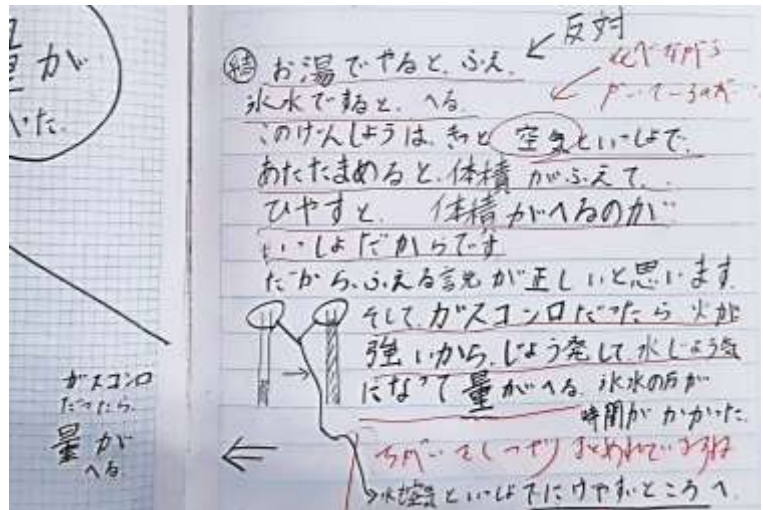 量が
いた。
ガスコンロ
だったら
量が
へる
反対
結 お湯でやると、ふえ、
氷水でやると、へる。
このけんしょうは、きっと空気といっしょで、
あたたまめると、体積がふえて、
ひやすと、体積がへるのが
いっしょだからです
だから、ふえる説が正しいと思います
そして、ガスコンロだったら火が
強いから、じょう発して水じょう気
になって量がへる。氷水の方が
時間がかかった。
ちがいをしっかりまとめれていますね
空気といっしょでにげやすいところへ